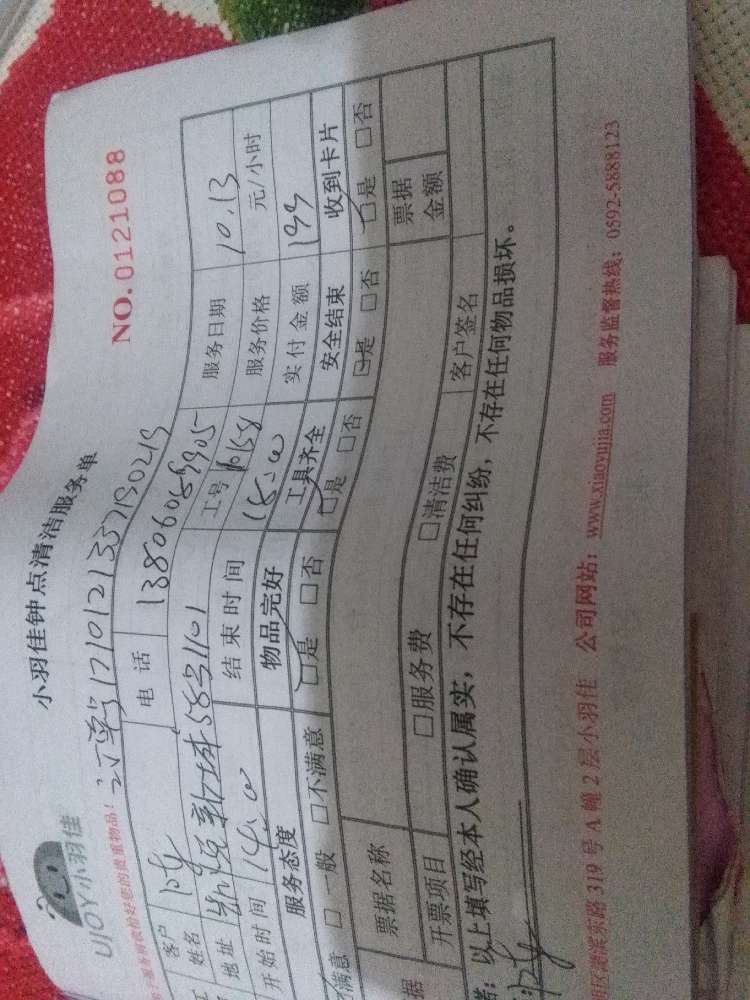 UJOY小羽佳
小羽佳钟点清洁服务单
NO.0121088
服务前收拾好您的贵重物品!
订单号1710121337190219
客户 电话 13806059905 服务日期 10.13
姓名 工号 10158 服务价格 元/小时
地址 58号1101
开始时间 14:00 结束时间 15:00 实付金额 199
服务态度 物品完好 工具齐全 安全结束 收到卡片
满意 □一般 □不满意 □是 □否 □是 □否 □是 □否 □是 □否
票据名称 票据金额
开票项目 □服务费 □清洁费 客户签名
以上填写经本人确认属实,不存在任何纠纷,不存在任何物品损坏。
东路319号A幢2层小羽佳 公司网站:www.xiaoyujia.com 服务监督热线:0592-5888123